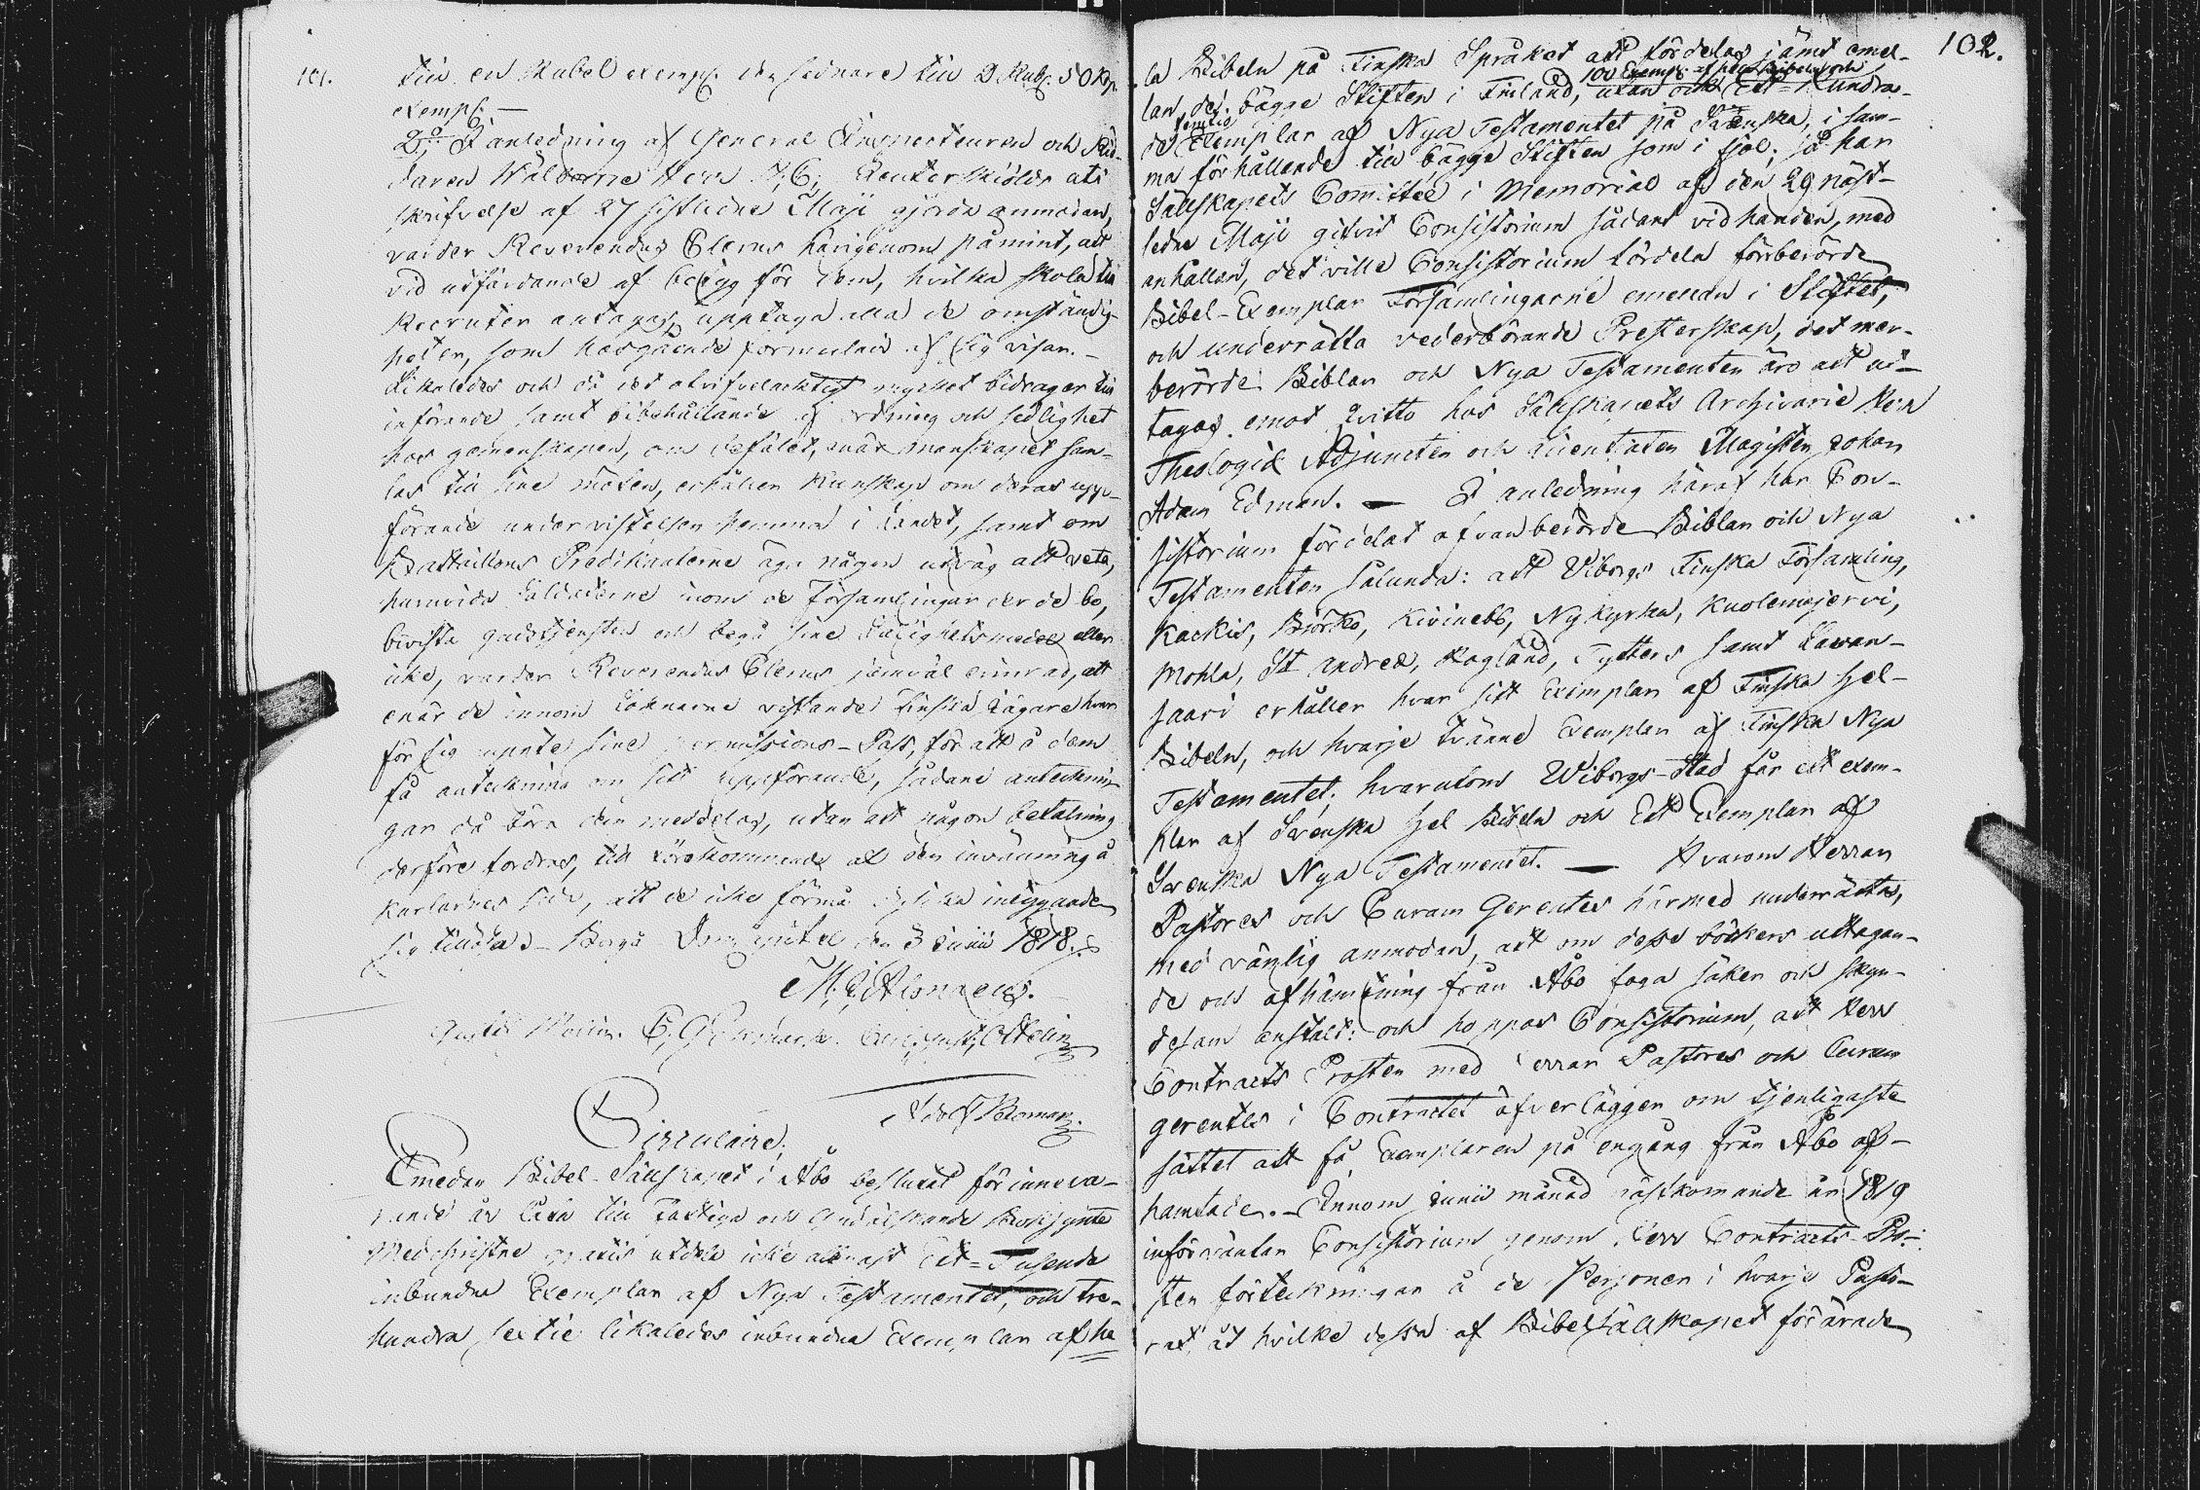 101.
till en Rubel exempl: den sednare till 2 Rub: 50 Kop
exempl: —
2:o I anledning af General Inspecteuren och Rid-
daren Wälborne Herr
skrifvelse af 27 sistledne Maji gjorde anmodan,
varder Reverendus Clerus härigenom påmint, att
vid utfärdande af betyg för dem, hvilka skola till
Recruter antagas, upptaga alla de omständig-
heter, som närgående formulair af sig visar. —
Likaledes och då det otvifvelacktigt mycket bidrager till
införande samt bibehållande af ordning och sedlighet
hos gemenskapen, om befälet, enär manskapet sam-
las till sine möten, erhåller kunskap om deras upp-
förande under vistelsen hemma i Landet, samt om
Battaillons Predikanterne äga någon utväg att veta,
huruvida Soldaterne inom de Församlingar der de bo,
bivista gudstjensten och begå sine Salighetsmedel eller
icke, varder Reverendus Clerus jemväl erinrad, att
enär de innom Socknarne vistande Finska Jägare hvar
för sig upnte sine permissions-Pass, för att å dem
få anteckning om sitt uppförande, sådane antecknin-
gar då böra dem meddelas, utan att någon betalning
derföre fordras, till förekommande af den invänning å
karlarnes sida, att de icke förmå
sig tillhåla. Borgå Domcapitel den 3 Junii 1818.
M. J. Alopaeus.
Gustaf Molin. Carl Gust: Ottelin
Adolf Roman
Circulaire,
Emedan Bibel-Sällskapet i Åbo beslutat för inneva-
rande år låta till Fattiga och Gudälskande
Medchristne gratis utdela icke allenast Ett-Tusende
inbundna Exemplar af Nya Testamentet, och tre-
hundra sextie likaledes inbundna Exemplar af he
102.
la Bibeln på Finska Språket att fördelas jämt emel-
100 Exempl: af hela Bibeln och
lan de bägge Stiften i Finland, utan och Ett-Hundra-
femtio
de Exemplar af Nya Testamentet på Svenska, i sam-
ma förhållande till bägge Stiften som i fjol; så har
Sällskapets Committée i Memorial af den 29 näst-
ledne Maji gifvit Consistorium sådant vid handen, med
anhållan, det ville Consistorium fördela förberörde
Bibel-Exemplar Församlingarne emellan i Stiftet,
och underrätta vederbörande Presterskap, det mer-
berörde Biblar och Nya Testamenten äro att ut-
tagas emot qvitto hos Sällskapets Archivarie Herr
Theologiæ Adjuncten och Licentiaten Magister Johan
Adam Edman. — I anledning häraf har Con-
sistorium fördelat ofvanberörde Biblar och Nya
Testamenten sålunda: att Viborgs Finska Församling,
Kackis, Biörkö, Kivinebb, Nykyrka, Kuolemajervi,
Mohla, St Andreæ, Hogland, Tytters samt Lawan-
saari erhåller hvar sitt Exemplar af Finska hel-
Bibeln, och hvarje tvänne Exemplar af Finska Nya
Testamentet; hvarutom Wiborgs-Stad får ett exem-
plar af Svenska hel Bibeln och Ett Exemplar af
Svenska Nya Testamentet. — Hvarom Herrar
Pastores och Curam Gerentes härmed underrättas,
med vänlig anmodan, att om desse böckers uttagan-
de och afhämtning från Åbo foga säker och skyn-
desam anstalt: och hoppas Consistorium, att Herr
Contracts Prosten med Herrar Pastores och Curam
gerentes i Contractet öfverlägger om tjenligaste
sättet att få Exemplaren på engång från Åbo af-
hämtade. — Innom Junii månad nästkommande år 1819
införväntar Consistorium genom Herr Contracts Pro-
sten förteckningar å de Personer i hvarje Pasto-
rat, åt hvilke desse af Bibelsällskapet förärade